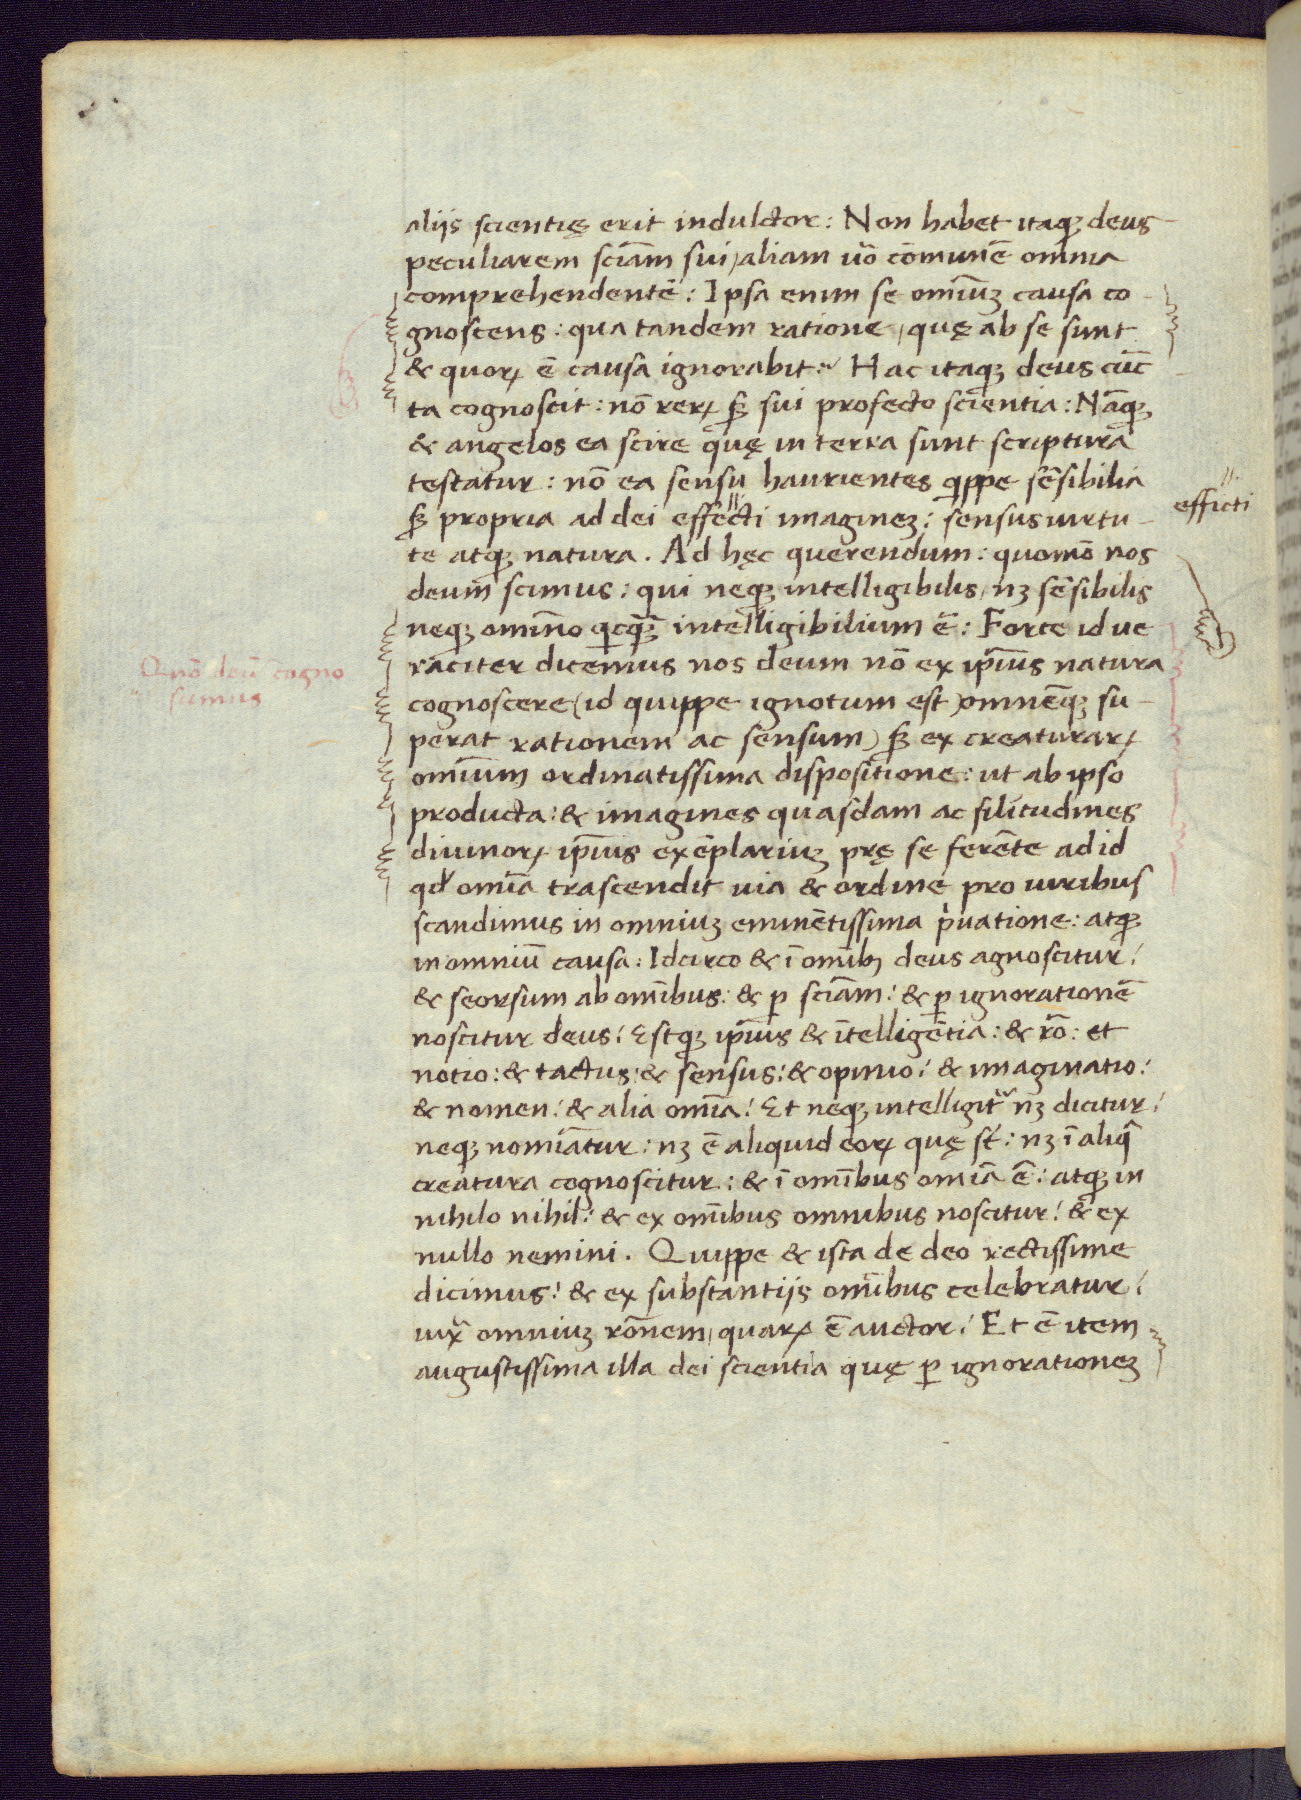 aliis scientię erit indultor: Non habet itaqꝫ deus
peculiarem sciam̄ sui, aliam ũo cōmunē omnia
comprehendentē: Ipsa enim se omiūꝫ causa co-
gnoscens: qua tandem ratione, quę ab se sunt
& quoꝝ ē causa ignorabit: Hac itaqꝫ deus cūc
ta cognoscit: nō reꝝ sꝫ sui profecto scientia: Nāqꝫ
& angelos ea scire quę in terra sunt scriptura
testatur: nō ea sensu haurientes qippe sēsibilia
effecti
sꝫ propria ad dei effecti imagineꝫ: sensus uirtu-
te atqꝫ natura. Ad hęc querendum: quomō nos
deum scimus: qui neqꝫ intelligibilis, nꝫ sēsibilis
neqꝫ omīno qicqꝫ intelligibilium ē: Forte id ue
Quō deū cogno
scimus
raciter dicemus nos deum nō ex ipīus natura
cognoscere (id quippe ignotum est omnēqꝫ su-
perat rationem ac sensum) sꝫ ex creaturaꝝ
omīum ordinatissima dispositione: ut ab ipso
producta: & imagines quasdam ac silītudines
diuinoꝝ ipīus exēplariuꝫ prę se ferēte ad id
qd omīa trascendit uia & ordine pro uiribus
scandimus in omniuꝫ eminētissima priuatione: atqꝫ
in omniū causa: Idcirco & ī omībꝫ deus agnoscitur:
& seorsum ab omībus: & ꝑ sciam̄: & ꝑ ignorationē
noscitur deus: Estqꝫ ipīus & ītelligētia: & rō: et
notio: & tactus: & sensus: & opinio: & imaginatio:
& nomen: & alia omīa: Et neqꝫ intelligit̃ nꝫ dicitur:
neqꝫ nomīatur: nꝫ ē aliquid eoꝝ quę st̄: nꝫ ī aliq̄
creatura cognoscitur: & ī omībus omīa ē: atqꝫ in
nihilo nihil: & ex omībus omnibus noscitur: & ex
nullo nemini. Quippe & ista de deo rectissime
dicimus: & ex substantiis omībus celebratur:
iuxͣ omniuꝫ rōnem, quaꝝ ē auctor: Et ē item
augustissima illa dei scientia quę ꝑ ignorationeꝫ